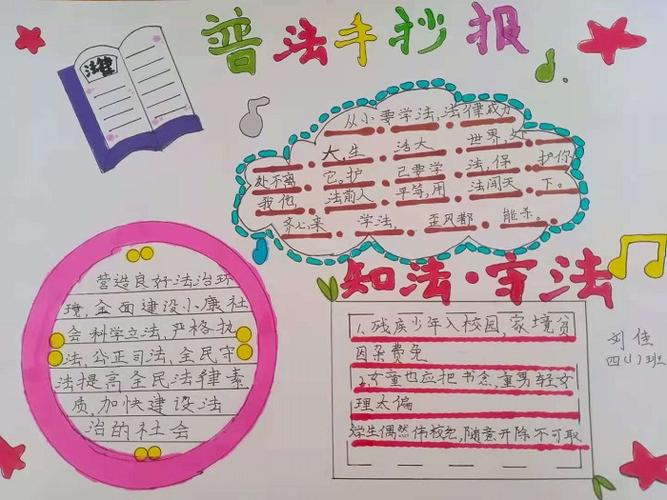 普法手抄报
法律
从小要学法,法律威力
大,生活大世界,处
处不离它。护己要学法,保护你
我他,法前人平等,用法闯天下。
齐心来学法,歪风都能杀。
知法·守法
营造良好法治环
境,全面建设小康社
会科学立法,严格执
法,公正司法,全民守
法提高全民法律素
质,加快建设法
治的社会
1.残疾少年入校园,家境贫
因杂费免
2.女童也应把书念,重男轻女
理太偏
学生偶然伟校纪,随意开除不可取
刘佳
四(1)班